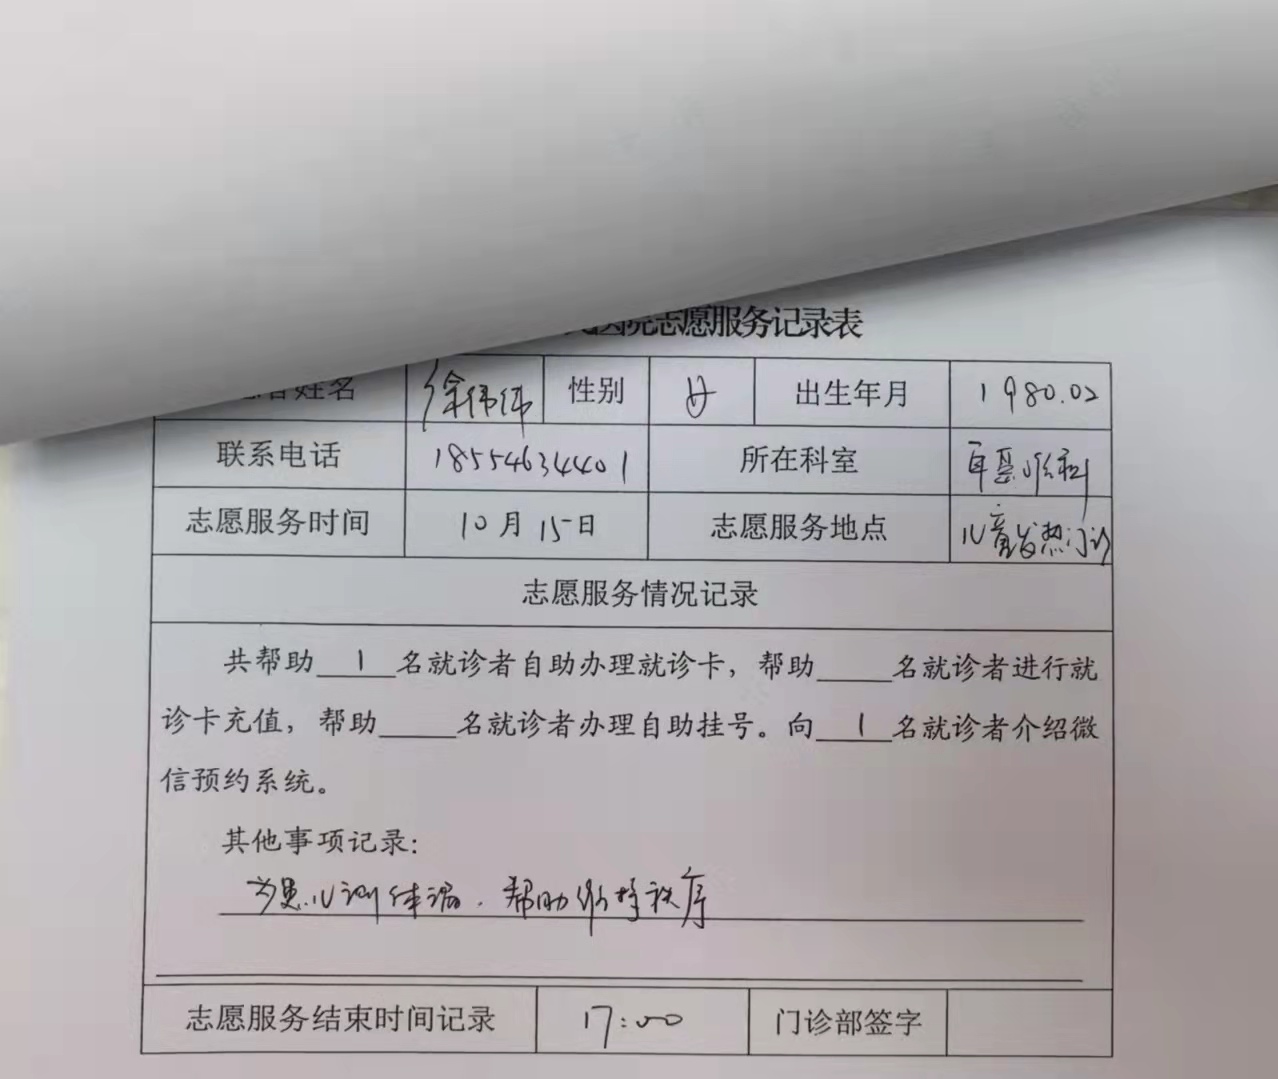 医院志愿服务记录表
者姓名 徐伟伟 性别 女 出生年月 1980.02
联系电话 18554634401 所在科室 耳鼻喉科
志愿服务时间 10月15日 志愿服务地点 儿童发热门诊
志愿服务情况记录
共帮助 1 名就诊者自助办理就诊卡，帮助____名就诊者进行就
诊卡充值，帮助____名就诊者办理自助挂号。向 1 名就诊者介绍微
信预约系统。
其他事项记录：
为患儿测体温．帮助维持秩序
志愿服务结束时间记录 17:00 门诊部签字